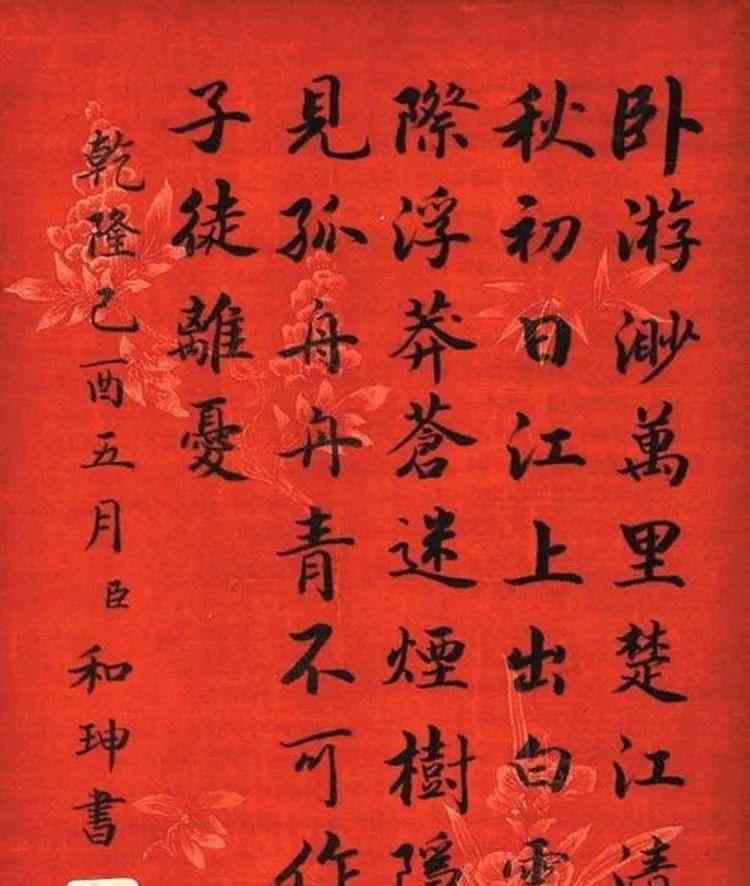 卧游渺萬里楚江清
秋初日江上出白雲
際浮莽蒼迷煙樹隱
見孤舟丹青不可作
子徒離憂
乾隆己酉五月臣和珅書